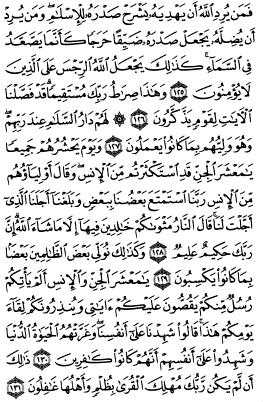 فَمَن يُرِدِ ٱللَّهُ أَن يَهْدِيَهُۥ يَشْرَحْ صَدْرَهُۥ لِلْإِسْلَٰمِ ۖ وَمَن يُرِدْ
أَن يُضِلَّهُۥ يَجْعَلْ صَدْرَهُۥ ضَيِّقًا حَرَجًا كَأَنَّمَا يَصَّعَّدُ
فِى ٱلسَّمَآءِ ۚ كَذَٰلِكَ يَجْعَلُ ٱللَّهُ ٱلرِّجْسَ عَلَى ٱلَّذِينَ
لَا يُؤْمِنُونَ ١٢٥ وَهَٰذَا صِرَٰطُ رَبِّكَ مُسْتَقِيمًا ۗ قَدْ فَصَّلْنَا
ٱلْءَايَٰتِ لِقَوْمٍ يَذَّكَّرُونَ ١٢٦ ۞ لَهُمْ دَارُ ٱلسَّلَٰمِ عِندَ رَبِّهِمْ ۖ
وَهُوَ وَلِيُّهُم بِمَا كَانُوا۟ يَعْمَلُونَ ١٢٧ وَيَوْمَ يَحْشُرُهُمْ جَمِيعًا
يَٰمَعْشَرَ ٱلْجِنِّ قَدِ ٱسْتَكْثَرْتُم مِّنَ ٱلْإِنسِ ۖ وَقَالَ أَوْلِيَآؤُهُم
مِّنَ ٱلْإِنسِ رَبَّنَا ٱسْتَمْتَعَ بَعْضُنَا بِبَعْضٍ وَبَلَغْنَآ أَجَلَنَا ٱلَّذِىٓ
أَجَّلْتَ لَنَا ۚ قَالَ ٱلنَّارُ مَثْوَىٰكُمْ خَٰلِدِينَ فِيهَآ إِلَّا مَا شَآءَ ٱللَّهُ ۗ إِنَّ
رَبَّكَ حَكِيمٌ عَلِيمٌ ١٢٨ وَكَذَٰلِكَ نُوَلِّى بَعْضَ ٱلظَّٰلِمِينَ بَعْضًۢا
بِمَا كَانُوا۟ يَكْسِبُونَ ١٢٩ يَٰمَعْشَرَ ٱلْجِنِّ وَٱلْإِنسِ أَلَمْ يَأْتِكُمْ
رُسُلٌ مِّنكُمْ يَقُصُّونَ عَلَيْكُمْ ءَايَٰتِى وَيُنذِرُونَكُمْ لِقَآءَ
يَوْمِكُمْ هَٰذَا ۚ قَالُوا۟ شَهِدْنَا عَلَىٰٓ أَنفُسِنَا ۖ وَغَرَّتْهُمُ ٱلْحَيَوٰةُ ٱلدُّنْيَا
وَشَهِدُوا۟ عَلَىٰٓ أَنفُسِهِمْ أَنَّهُمْ كَانُوا۟ كَٰفِرِينَ ١٣٠ ذَٰلِكَ
أَن لَّمْ يَكُن رَّبُّكَ مُهْلِكَ ٱلْقُرَىٰ بِظُلْمٍ وَأَهْلُهَا غَٰفِلُونَ ١٣١